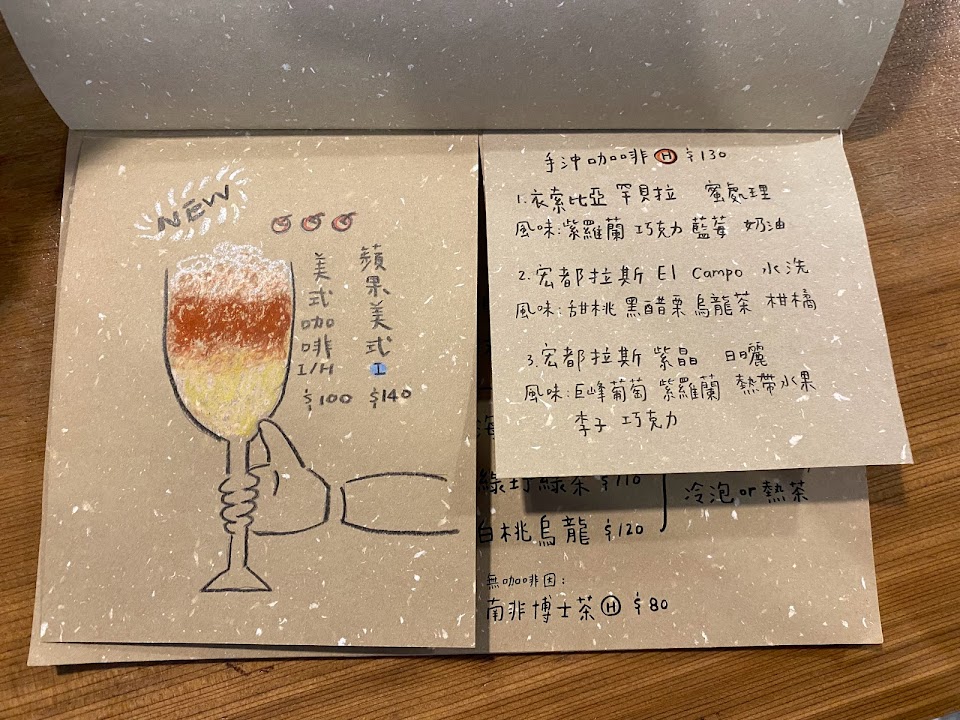 NEW
蘋果美式
I
$140
美式咖啡
I/H
$100
手沖咖啡 H $130
1.衣索比亞 罕貝拉 蜜處理
風味:紫羅蘭 巧克力 藍莓 奶油
2.宏都拉斯 El Campo 水洗
風味:甜桃 黑醋栗 烏龍茶 柑橘
3.宏都拉斯 紫晶 日曬
風味:巨峰葡萄 紫羅蘭 熱帶水果
李子 巧克力
綠茶 $110
冷泡 or 熱茶
白桃烏龍 $120
無咖啡因:
南非博士茶 H $80